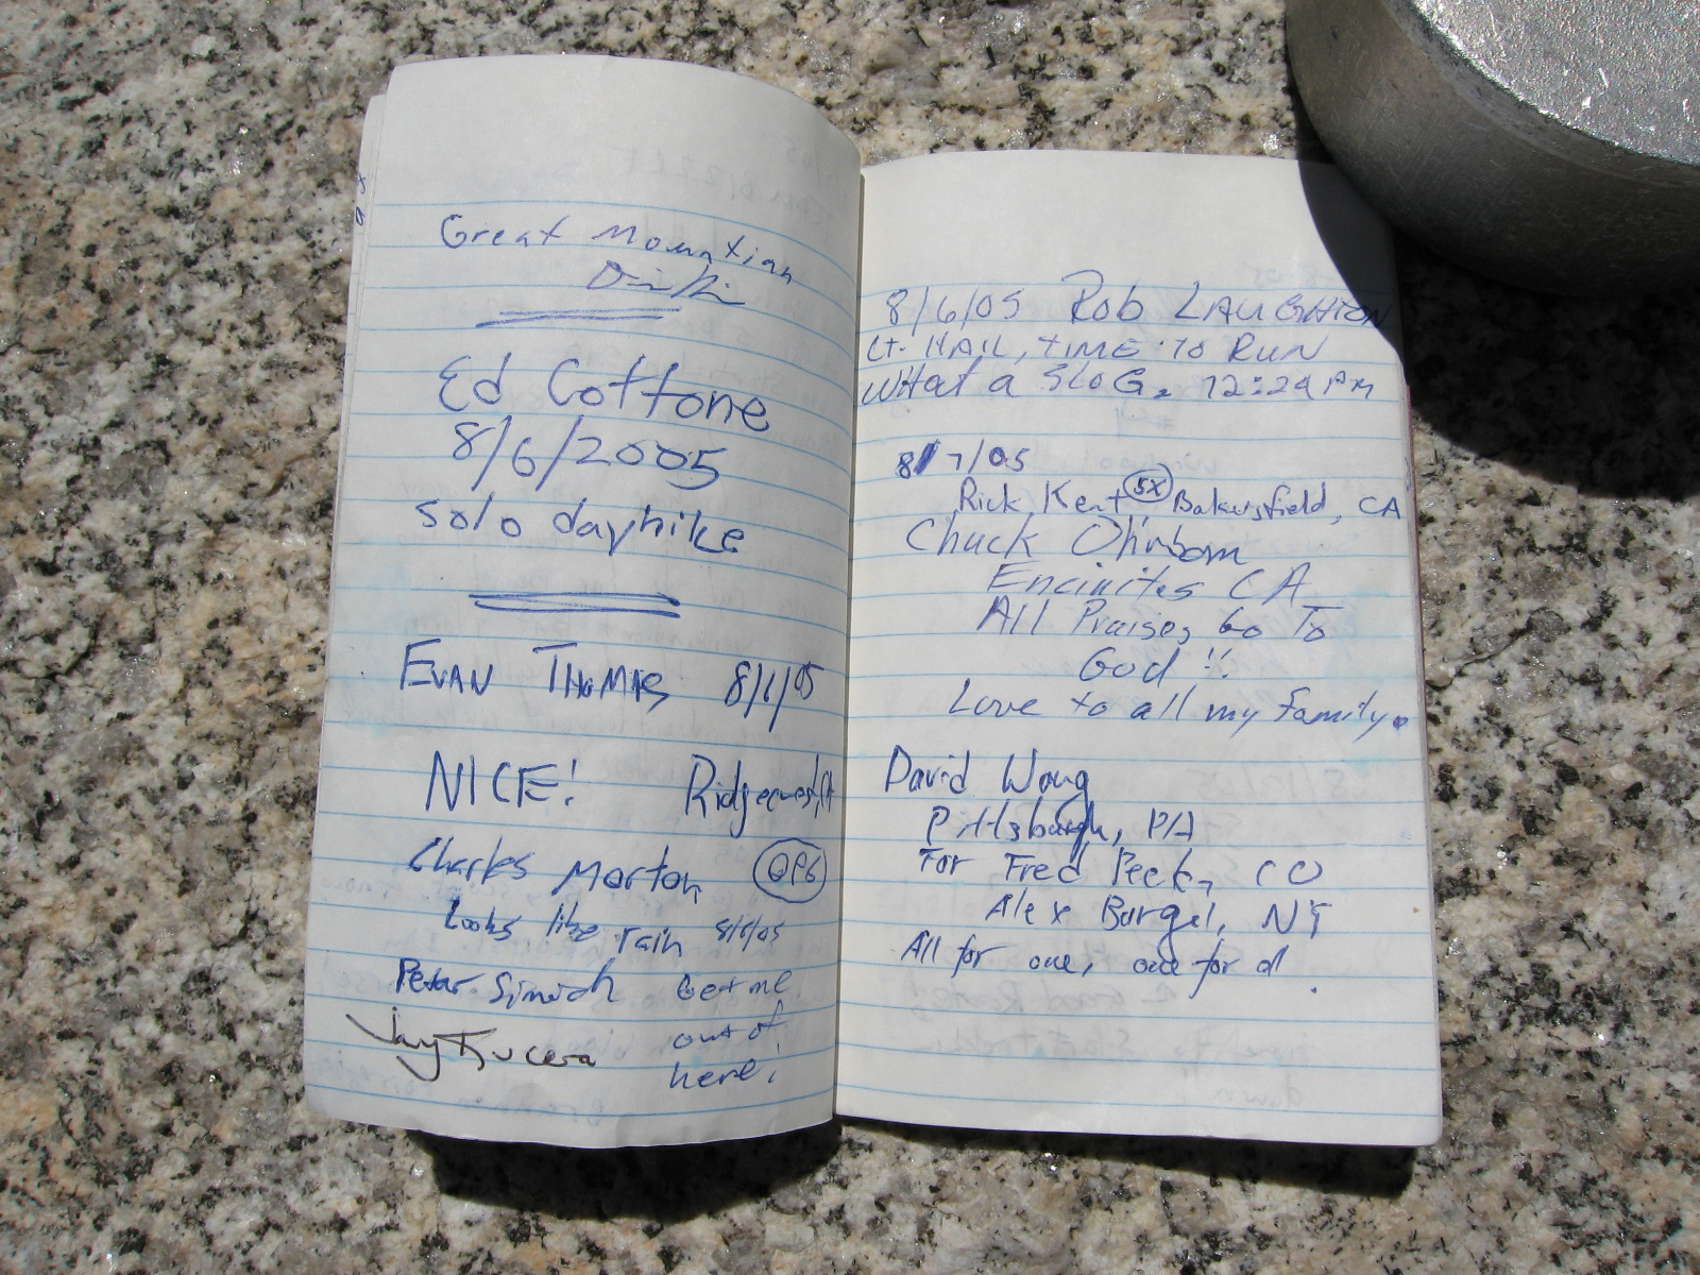 Great Mountian
Ed Cottone
8/6/2005
solo dayhike
EVAN THOMAS 8/6/05
NICE! Ridgecrest, CA
Charles Morton OPG
Looks like rain 8/6/05
Peter Get me
Jay Kucera out of
here!
8/6/05 Rob LAUGHTON
LT. HAIL, TIME TO RUN
WHAT a SLOG. 12:24 PM
8/7/05
Rick Kent, 5X Bakersfield, CA
Chuck
Encinites CA
All Praises Go To
God!!
Love to all my family.
David Wong
Pittsburgh, PA
For Fred Peck, CO
Alex Burgel, NY
All for one, one for all